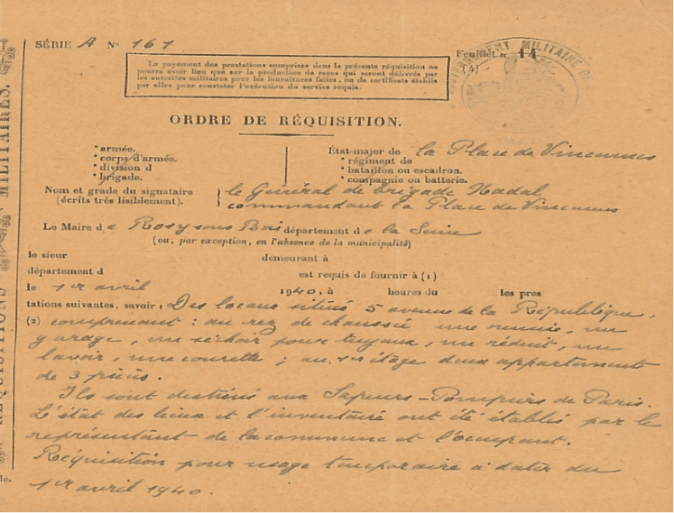 SÉRIE A N° 161
Feuillet n° 14
(4)
Le payement des prestations comprises dans la présente réquisition ne
pourra avoir lieu que sur la production de reçus qui seront délivrés par
les autorités militaires pour les fournitures faites, ou de certificats établis
par elles pour constater l'exécution du service requis.
ORDRE DE RÉQUISITION.
• armée.
• corps d'armée.
• division d
• brigade.
État-major de la Place de Vincennes
• régiment de
• bataillon ou escadron.
• compagnie ou batterie.
Nom et grade du signataire
(écrits très lisiblement).
le Général de brigade Nadal
commandant la Place de Vincennes
Le Maire de Rosny sous Bois département de la Seine
(ou, par exception, en l'absence de la municipalité)
le sieur demeurant à
département d est requis de fournir à (1)
le 1er avril 1940, à heures du les pres
tations suivantes, savoir : Des locaux situés 5 avenue de la République,
(2) comprenant : au rez de chaussée une remise, un
garage, un séchoir pour tuyaux, un réduit, un
lavoir, une courette ; au 1er étage deux appartements
de 3 pièces.
Ils sont destinés aux Sapeurs-Pompiers de Paris.
L'état des lieux et l'inventaire ont été établis par le
représentant de la commune et l'occupant.
Réquisition pour usage temporaire à dater du
1er avril 1940.
RÉQUISITIONS MILITAIRES.